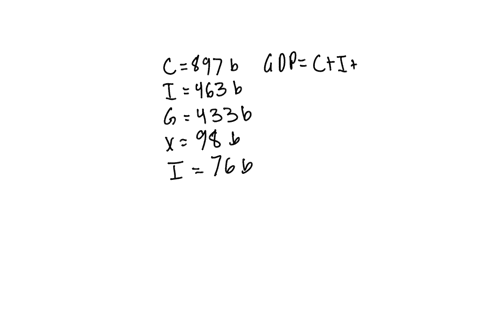 C = 897 b GDP = C + I +
I = 463 b
G = 433 b
x = 98 b
I = 76 b